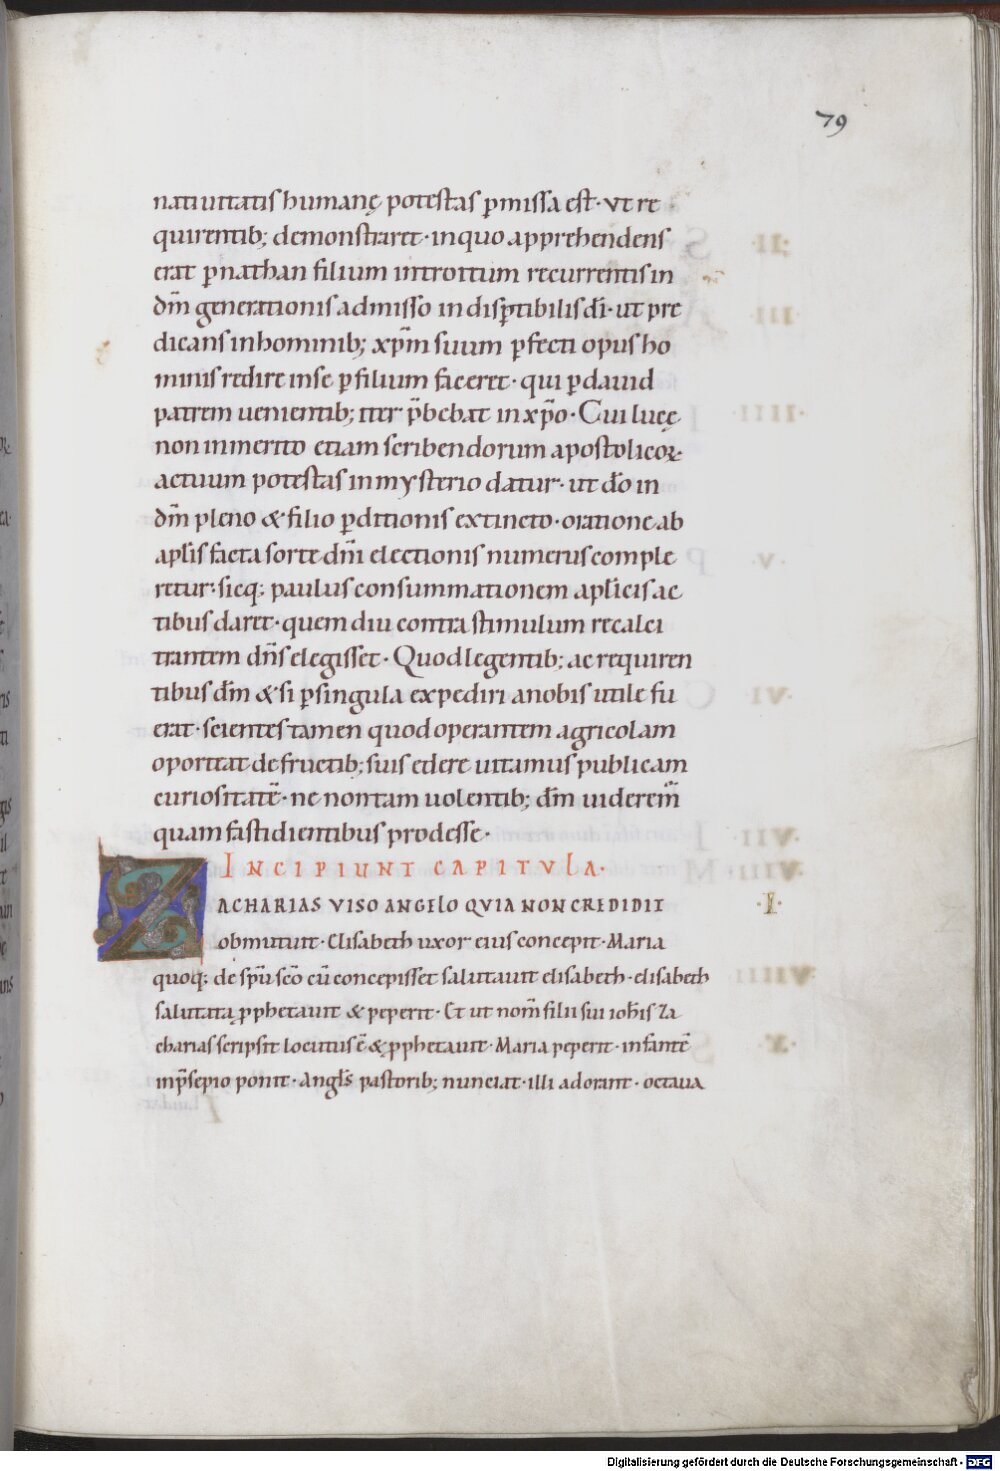 79
natiuitatis humanę potestas p̄missa est· vt re
quirentib; demonstraret· in quo apprehendens
erat p̄ nathan filium introitum recurrentis in
dm̄ generationis admisso indisp̄tibilis dī· ut pre
dicans in hominib; xp̄m suum p̄fecti opus ho
minis redire in se p̄ filium faceret· qui p̄ dauid
patrem uenientib; iter p̄bebat in xp̄o· Cui lucę
non inmerito etiam scribendorum apostolicoꝝ
actuum potestas in mysterio datur· ut do͞ in
dm̄ pleno & filio p̄ditionis extincto· oratione ab
aplis̄ facta sorte dnī electionis numerus comple
retur· sicq; paulus consummationem aplicīs ac
tibus daret· quem diu contra stimulum recalci
trantem dn̄s elegisset· Quod legentib; ac requiren
tibus dm̄ & si p̄ singula expediri a nobis utile fu
erat· scientes tamen quod operantem agricolam
oporteat de fructib; suis edere uitamus publicam
curiositatē· ne non tam uolentib; dm̄ uideremur̄
quam fastidientibus prodesse·
INCIPIUNT CAPITVLA·
ZACHARIAS VISO ANGELO QVIA NON CREDIDIT ·I·
obmutuit· Elisabeth uxor eius concepit· Maria
quoq; de sp̄u scō cū concepisset salutauit elisabeth· elisabeth
salutata p̄phetauit & peperit· Et ut nom̄ filii sui iohīs Za
charias scripsit locutus ē & p̄phetauit· Maria peperit· infantē
in p̄sepio ponit· Angls̄ pastorib; nunciat· illi adorant· octaua
Digitalisierung gefördert durch die Deutsche Forschungsgemeinschaft - DFG